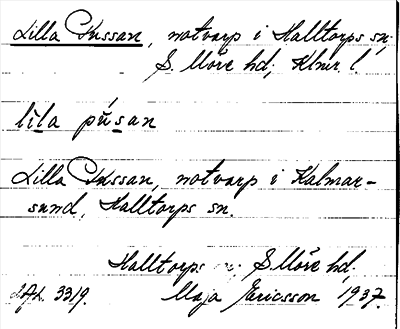 Lilla Pussan, notvarp i Halltorps sn.
S. Möre hd, Klmr. l.
lila pusan
Lilla Pussan, notvarp i Kalmar-
sund, Halltorps sn.
Halltorps sn. S. Möre hd.
3319. Maja Ericsson 1937.